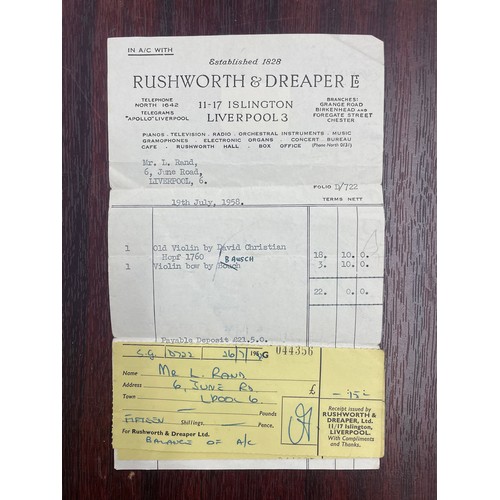 IN A/C WITH
Established 1828
RUSHWORTH & DREAPER LTD
TELEPHONE
NORTH 1642
TELEGRAMS
"APOLLO" LIVERPOOL
11-17 ISLINGTON
LIVERPOOL 3
BRANCHES:
GRANGE ROAD
BIRKENHEAD AND
FOREGATE STREET
CHESTER
PIANOS . TELEVISION . RADIO . ORCHESTRAL INSTRUMENTS . MUSIC
GRAMOPHONES . ELECTRONIC ORGANS . CONCERT BUREAU
CAFE . RUSHWORTH HALL . BOX OFFICE (Phone North 0131)
Mr. L. Rand,
6, June Road,
LIVERPOOL, 6.
FOLIO D/722
19th July, 1958.
TERMS NETT
1 Old Violin by David Christian
Hopf 1760 18. 10. 0.
BAUSCH
1 Violin bow by 3. 10. 0.
22. 0. 0.
Payable Deposit £21.5.0.
S.G. D722 26/7/ G 044356
Name MR L. RAND
Address 6, JUNE RD
Town L'POOL 6.
£ — 15 —
— Pounds
FIFTEEN Shillings, — Pence,
For Rushworth & Dreaper Ltd.
BALANCE OF A/C
Receipt issued by
RUSHWORTH &
DREAPER, Ltd.
11/17 Islington,
LIVERPOOL.
With Compliments
and Thanks.